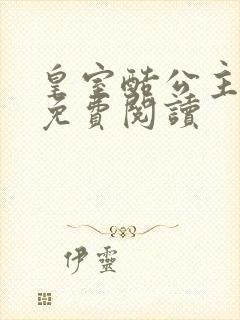 皇室酷公主
免費閱讀
伊靈